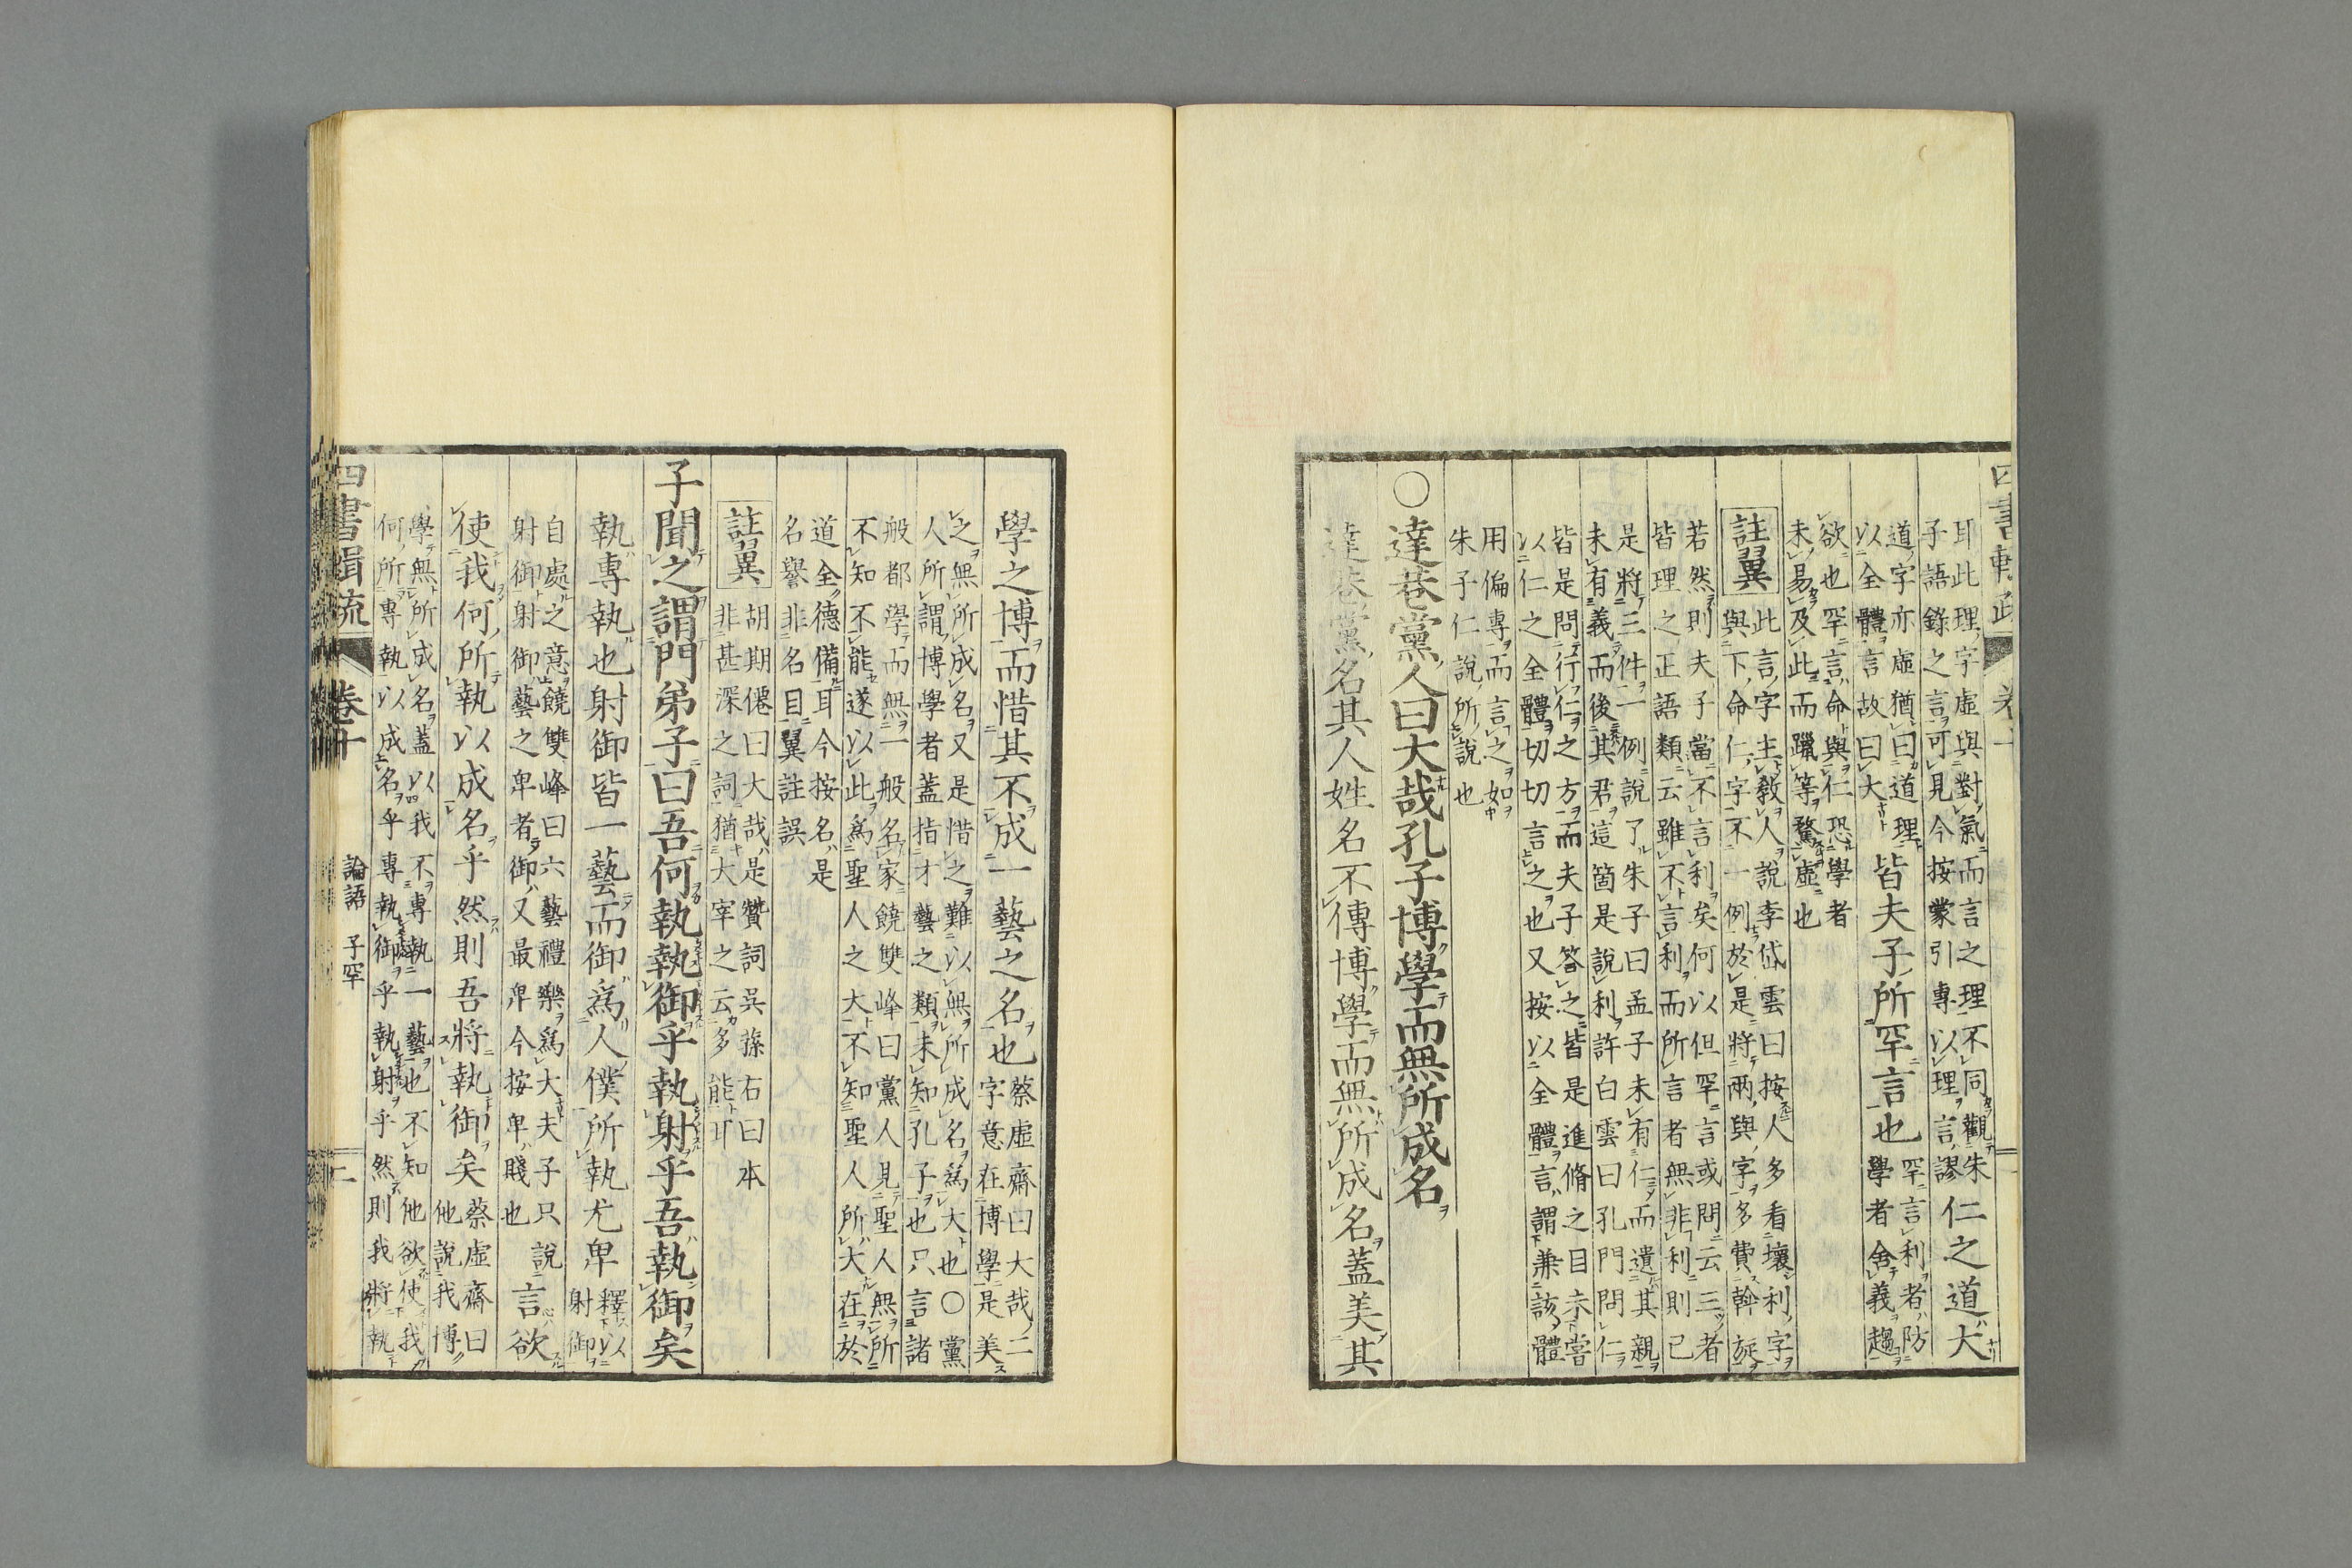 耳此理字虛與對氣而言之理不同觀朱
子語錄之言可見今按蒙引專以理言謬
仁之道大
道字亦虛猶曰道理
以全體言故曰大
皆夫子所罕言也
罕言利者防
學者舍義趨
欲也罕言命與仁恐學者
未易及此而躐等騖虛也
註翼
此言字主教人說李岱雲曰按人多看壞利字
與下命仁字不一例於是將兩與字多費斡旋
若然則夫子當不言利矣何以但罕言或問云三者
皆理之正語類云雖不言利而所言者無非利則已
是將三件一例說了朱子曰孟子未有仁而遺其親
未有義而後其君這箇是說利許白雲曰孔門問仁
皆是問行仁之方而夫子答之皆是進脩之目未嘗
以仁之全體切切言之也又按以全體言謂兼該體
用偏專而言之如
朱子仁說所說也
○達巷黨人曰大哉孔子博學而無所成名
達巷黨名其人姓名不傳博學而無所成名蓋美其
學之博而惜其不成一藝之名也
蔡虛齋曰大哉二
字意在博學是美
之無所成名又是惜之難以無所成名爲大也○黨
人所謂博學者蓋指才藝之類未知孔子也只言諸
般都學而無一般名家饒雙峰曰黨人見聖人無所
不知不能遂以此爲聖人之大不知聖人所大在於
道全德備耳今按名是
名譽非名目翼註誤
註翼
胡期僊曰大哉是贊詞吳蓀右曰本
非甚深之詞猶大宰之云多能耳
子聞之謂門弟子曰吾何執執御乎執射乎吾執御矣
執專執也射御皆一藝而御爲人僕所執尤卑
釋以
射御
自處之意饒雙峰曰六藝禮樂爲大夫子只說
射御射御藝之卑者御又最卑今按卑賤也
言欲
使我何所執以成名乎然則吾將執御矣
蔡虛齋曰
他說我博
學無所成名蓋以我不專執一藝也不知他欲使我
何所專執以成名乎專執御乎執射乎然則我將執
四書輯疏
卷十
論語 子罕
二